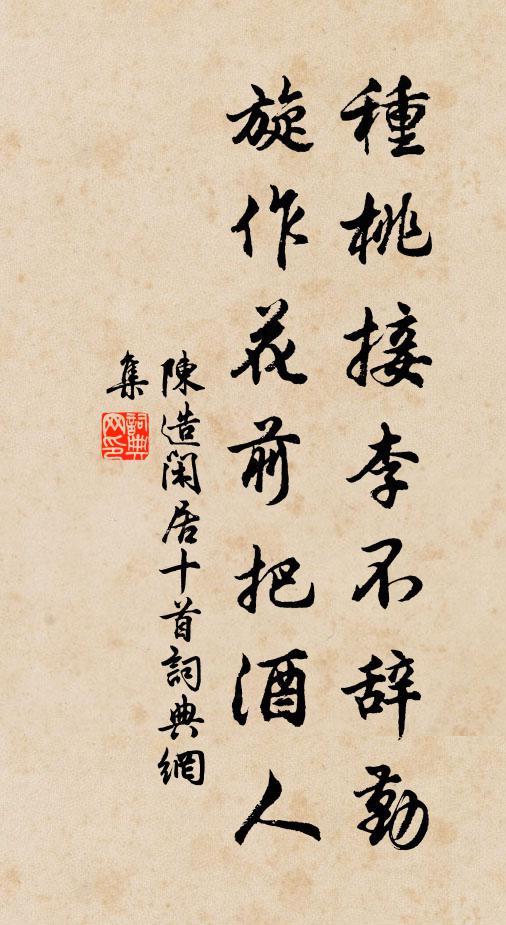 種桃接李不辞勤
旋作花前把酒人
陳造閑居十首詞典網
集
詞典
网印